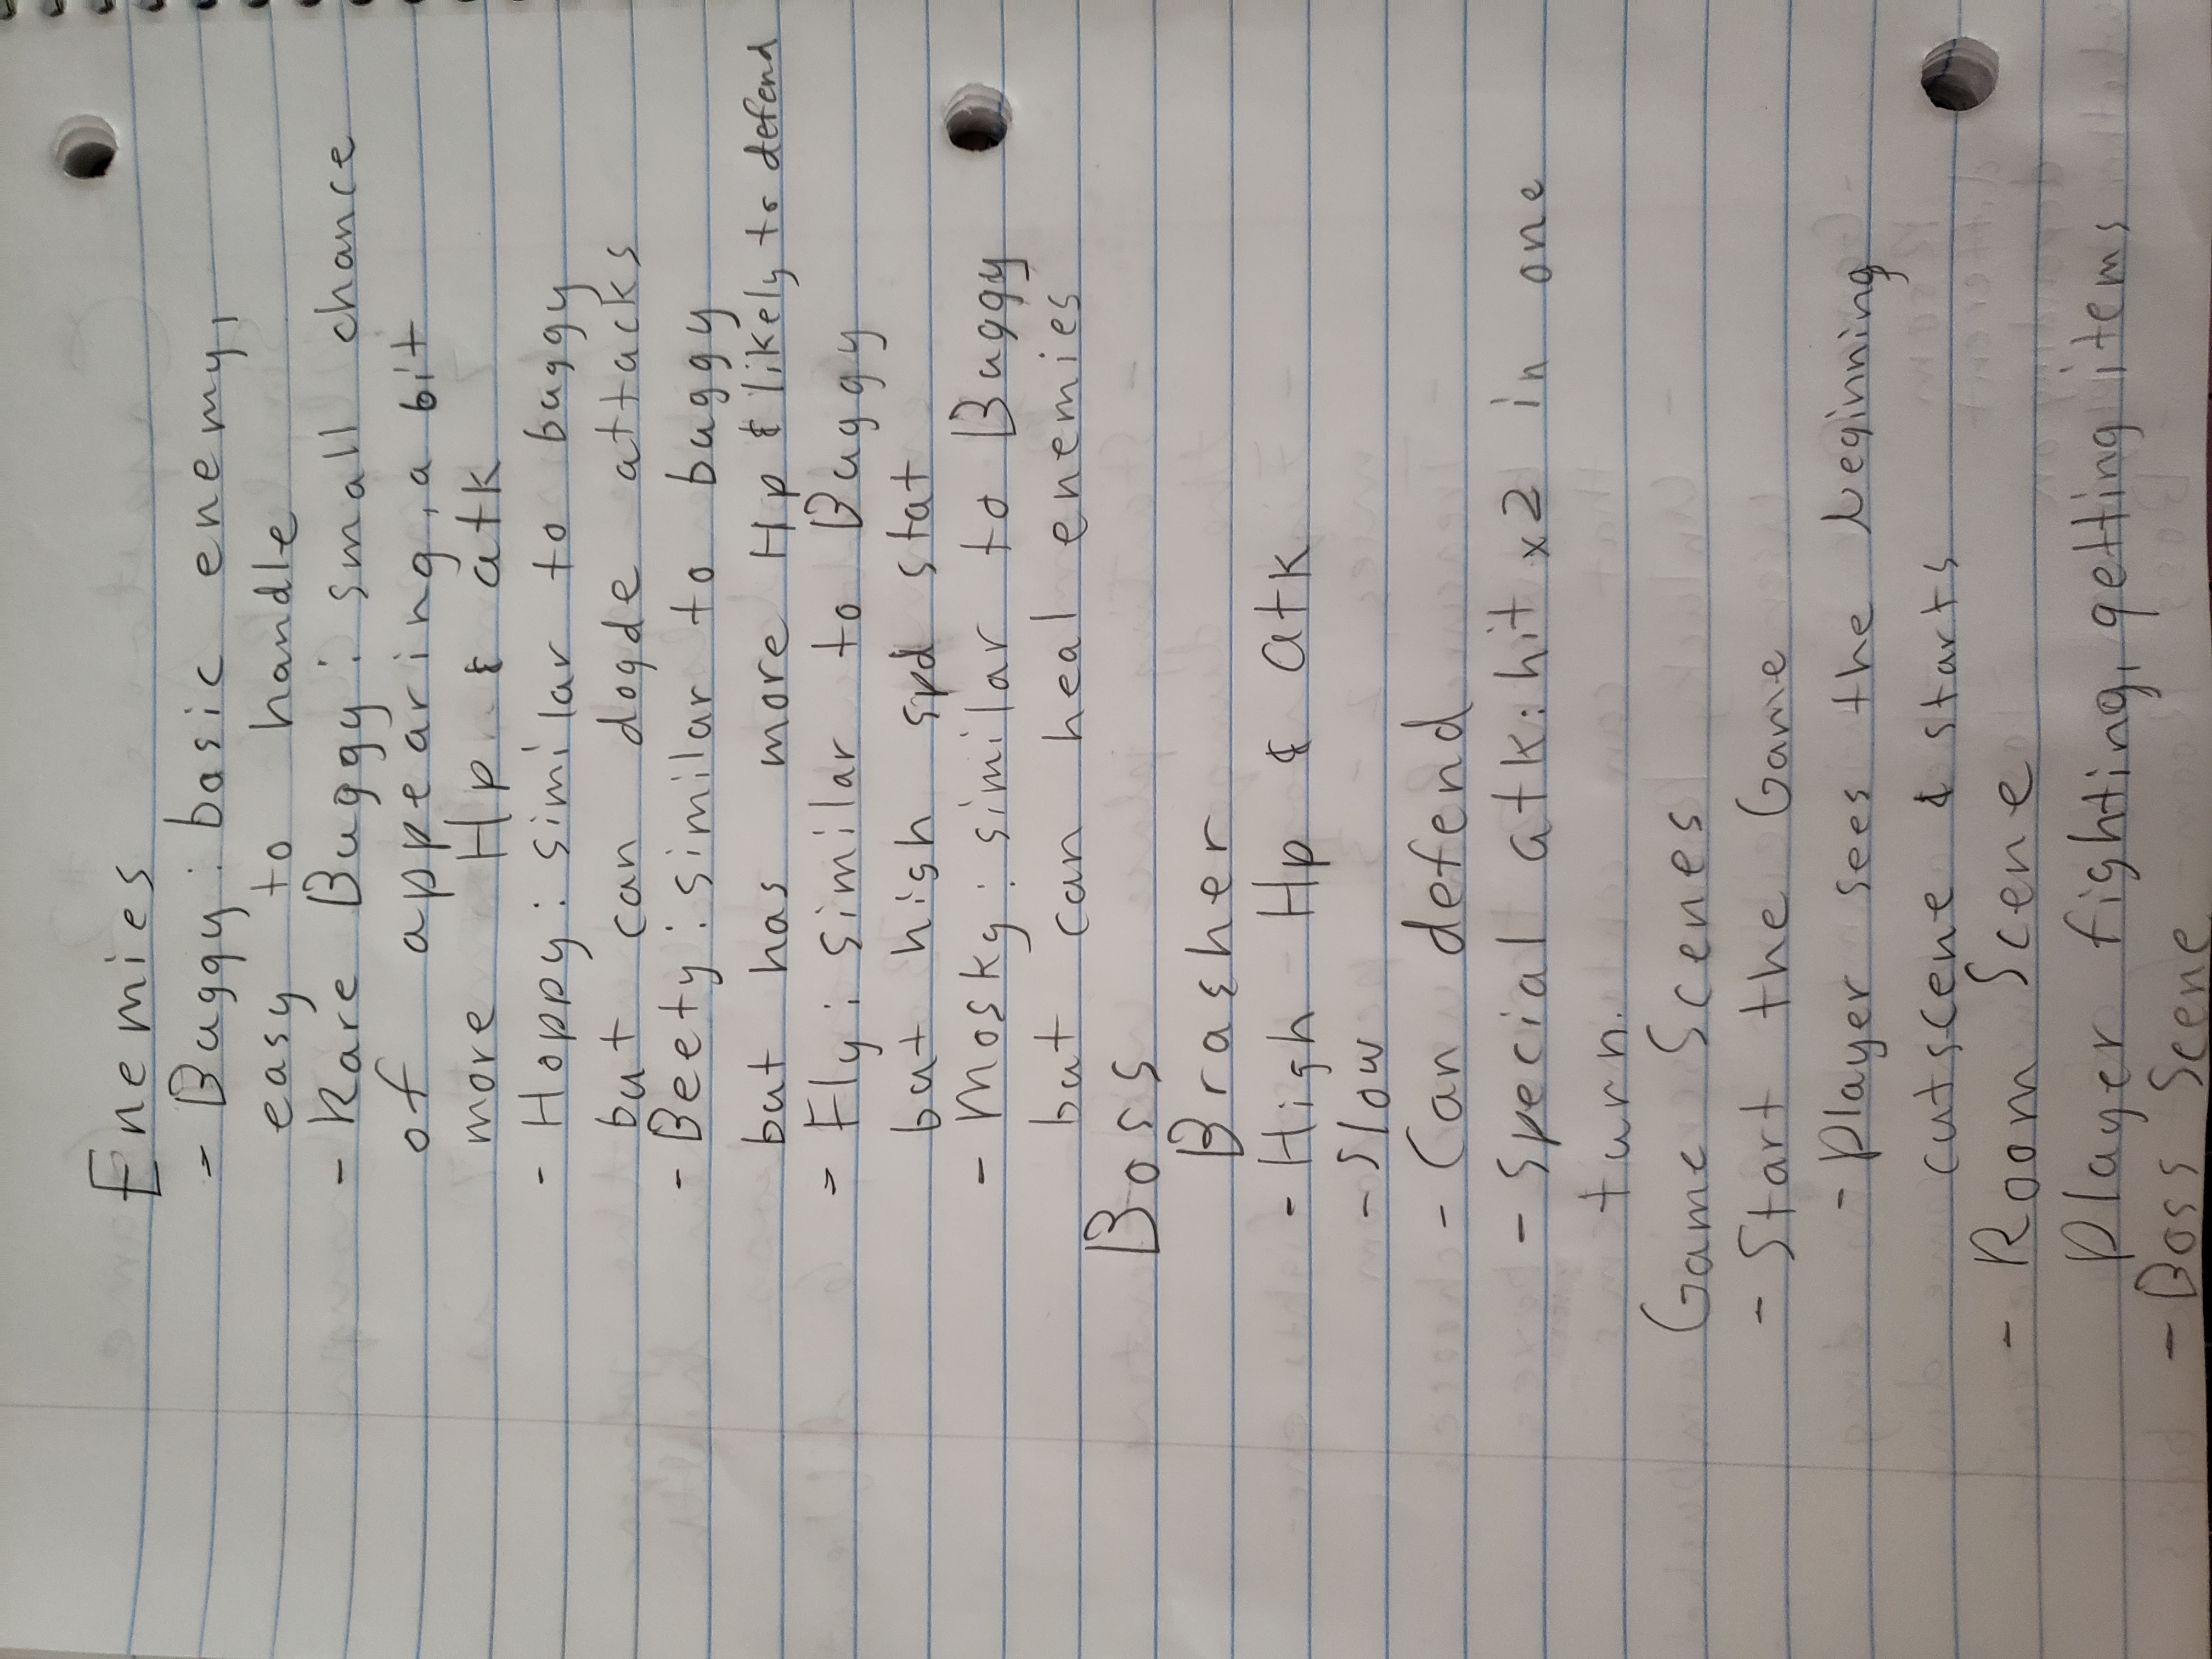 Enemies
- Buggy: basic enemy,
easy to handle
- Rare Buggy: small chance
of appearing, a bit
more Hp & atk
- Hoppy: similar to buggy
but can dogde attacks
- Beety: similar to buggy
but has more Hp & likely to defend
- Fly: similar to Buggy
but high spd stat
- Mosky: similar to Buggy
but can heal enemies
Boss
Brasher
- High Hp & atk
- Slow
- Can defend
- Special atk: hit x2 in one
turn.
Game Scenes
- Start the Game
- Player sees the beginning
cutscene & starts
- Room Scene
Player fighting, getting items
- Boss Scene